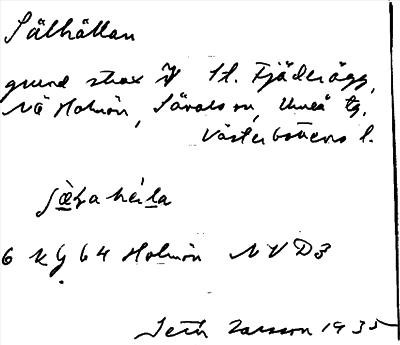 Sälhällan
grund strax V St. Fjäderägg,
NÖ Holmön, Sävars sn, Umeå tg,
Västerbottens l.
6 K g 64 Holmön NV D3
Seth Larsson 1935